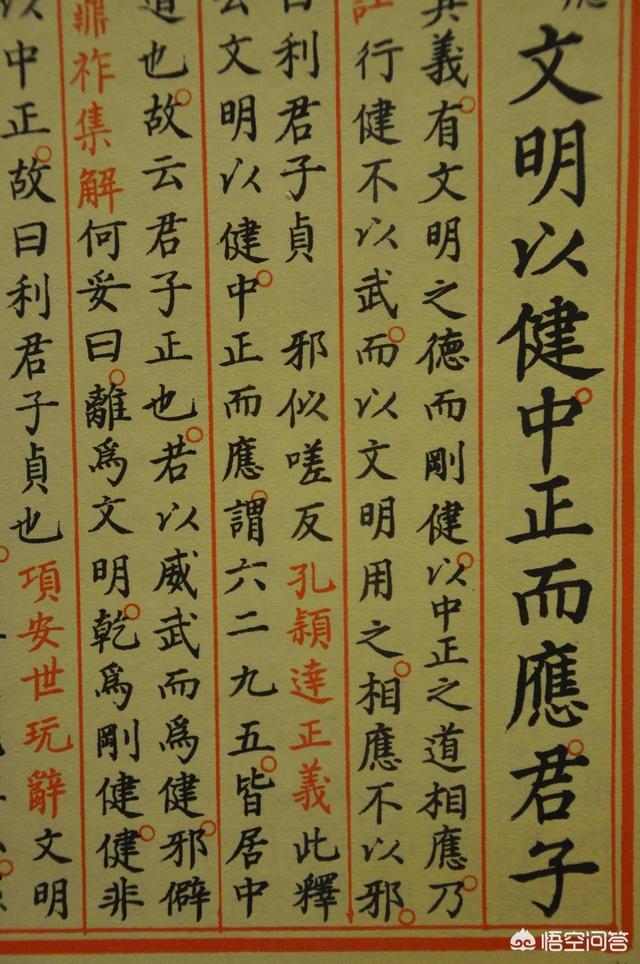 文明以健。中正而應。君子
其義。有文明之德而剛健。以中正之道相應。乃
註行健不以武。而以文明用之。相應不以邪。
曰利君子貞　邪似嗟反孔穎達正義此釋
云文明以健。中正而應。謂六二九五。皆居中
道也。故云君子正也。若以威武而爲健。邪僻
鼎祚集解何妥曰。離爲文明。乾爲剛健。健非
以中正。故曰利君子貞也項安世玩辭文明
悟空问答